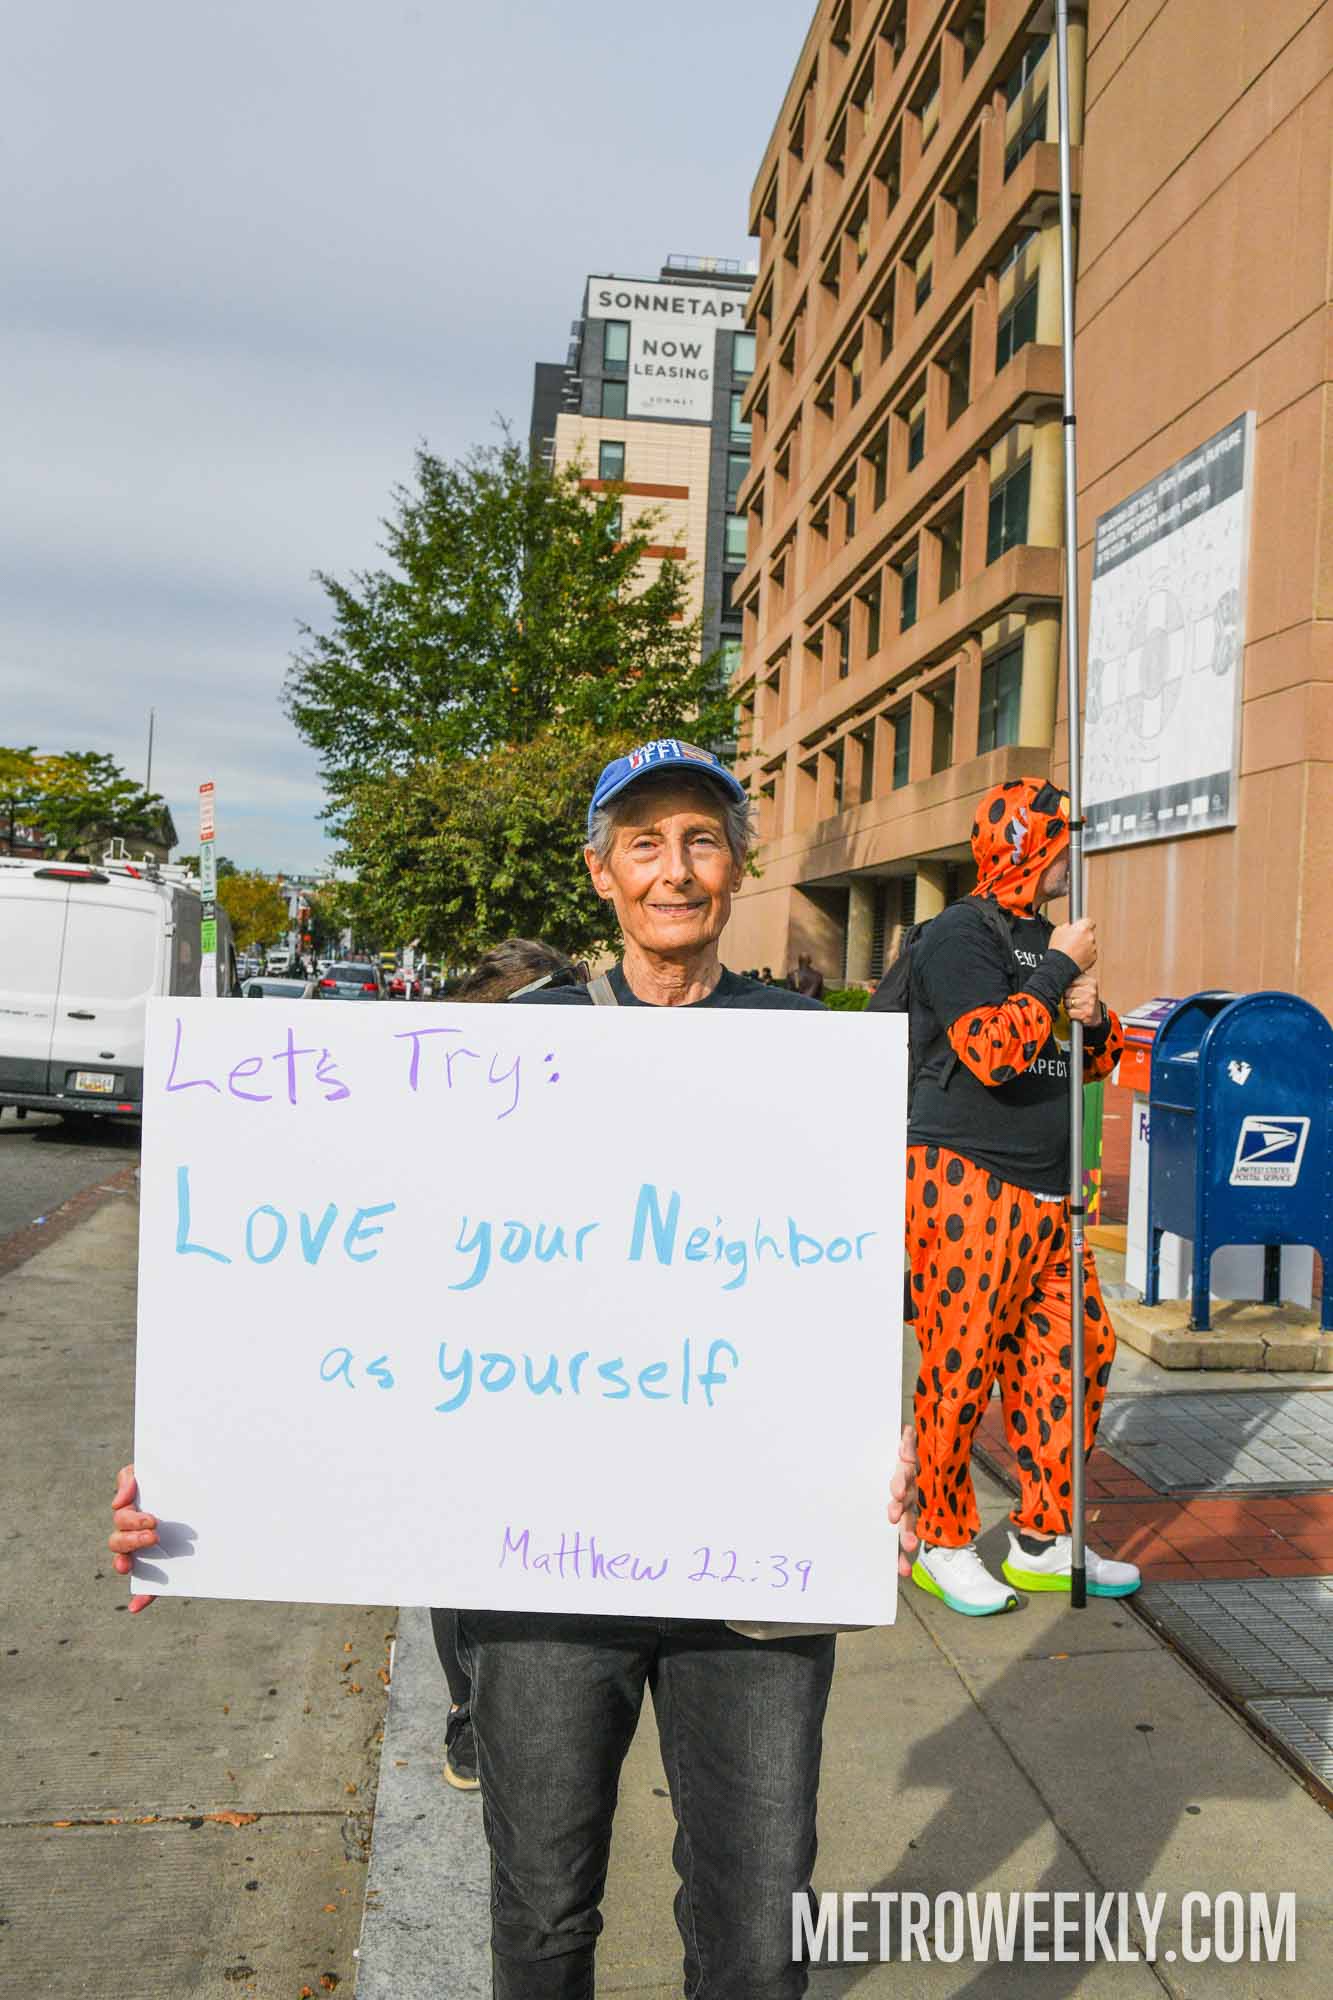 SONNETAPT
NOW
LEASING
SONNET
OFF!
Let's Try:
LOVE your Neighbor
as yourself
Matthew 22:39
EXPECT
UNITED STATES
POSTAL SERVICE
METROWEEKLY.COM